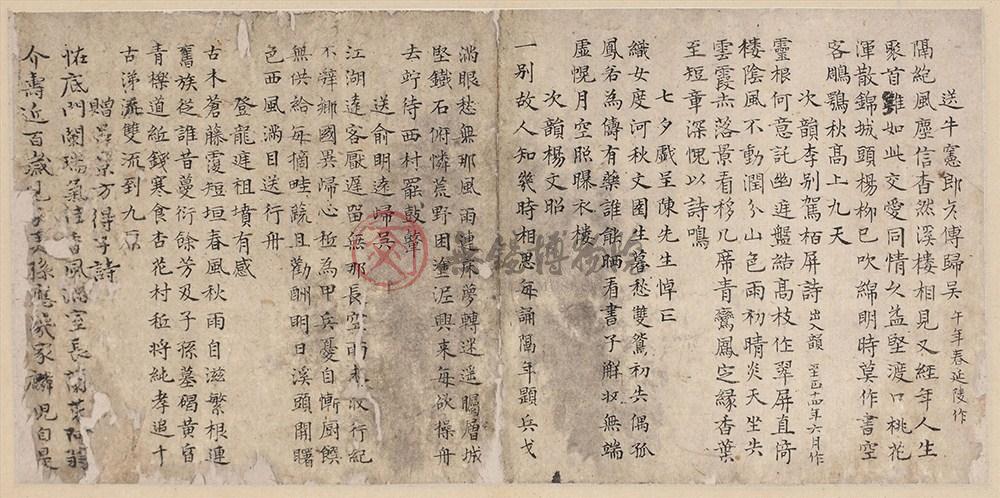 送牛憲郎彥傳歸吳 午年春延陵作
隔絕風塵信杳然溪樓相見又經年人生
聚首難如此交愛同情久益堅渡口桃花
渾散錦城頭楊柳已吹綿明時莫作書空
客鵬鶚秋高上九天
次韻李别駕栢屏詩 出入韻 至正十四年六月作
靈根何意託幽迋盤結高枝作翠屏直倚
楼陰風不動潤分山色雨初晴炎天坐共
雲霞赤落景看移几席青鸞鳳定緣香葉
至短章深愧以詩鳴
七夕戲呈陳先生悼亡
織女度河秋文園生暮愁雙鴛初失偶孤
鳳若為儔有藥誰能晒看書子解收無端
虛幌月空照曝衣樓
次韻楊文昭
一别故人知幾時相思每誦隔年題兵戈
滿眼愁無那風雨連床夢轉迷遥矚熸城
堅鐵石俯憐荒野困塗泥興来每欲操舟
去竚待西村罷鼓鼙
送俞明逵歸吳
江湖逵客厭遲留無那長空收行紀
不辤鄉國異歸心極為甲兵憂自慚厨饌
無供給每摘畦蔬且勸酬明日溪頭開曙
色西風滿目送行舟
登龍迋祖墳有感
古木蒼藤覆短垣春風秋雨自滋繁根連
舊族從誰昔蔓衍餘芳及子孫墓碣黄官
青櫟道紙錢寒食杏花村秪将純孝追千
古涕淚雙流到九原
贈吳景方得子詩
恠底門闌瑞氣佳香風滿室長蘭芽阿翁
介壽近百歲見孫應幾家麟児自是
無錫博物院